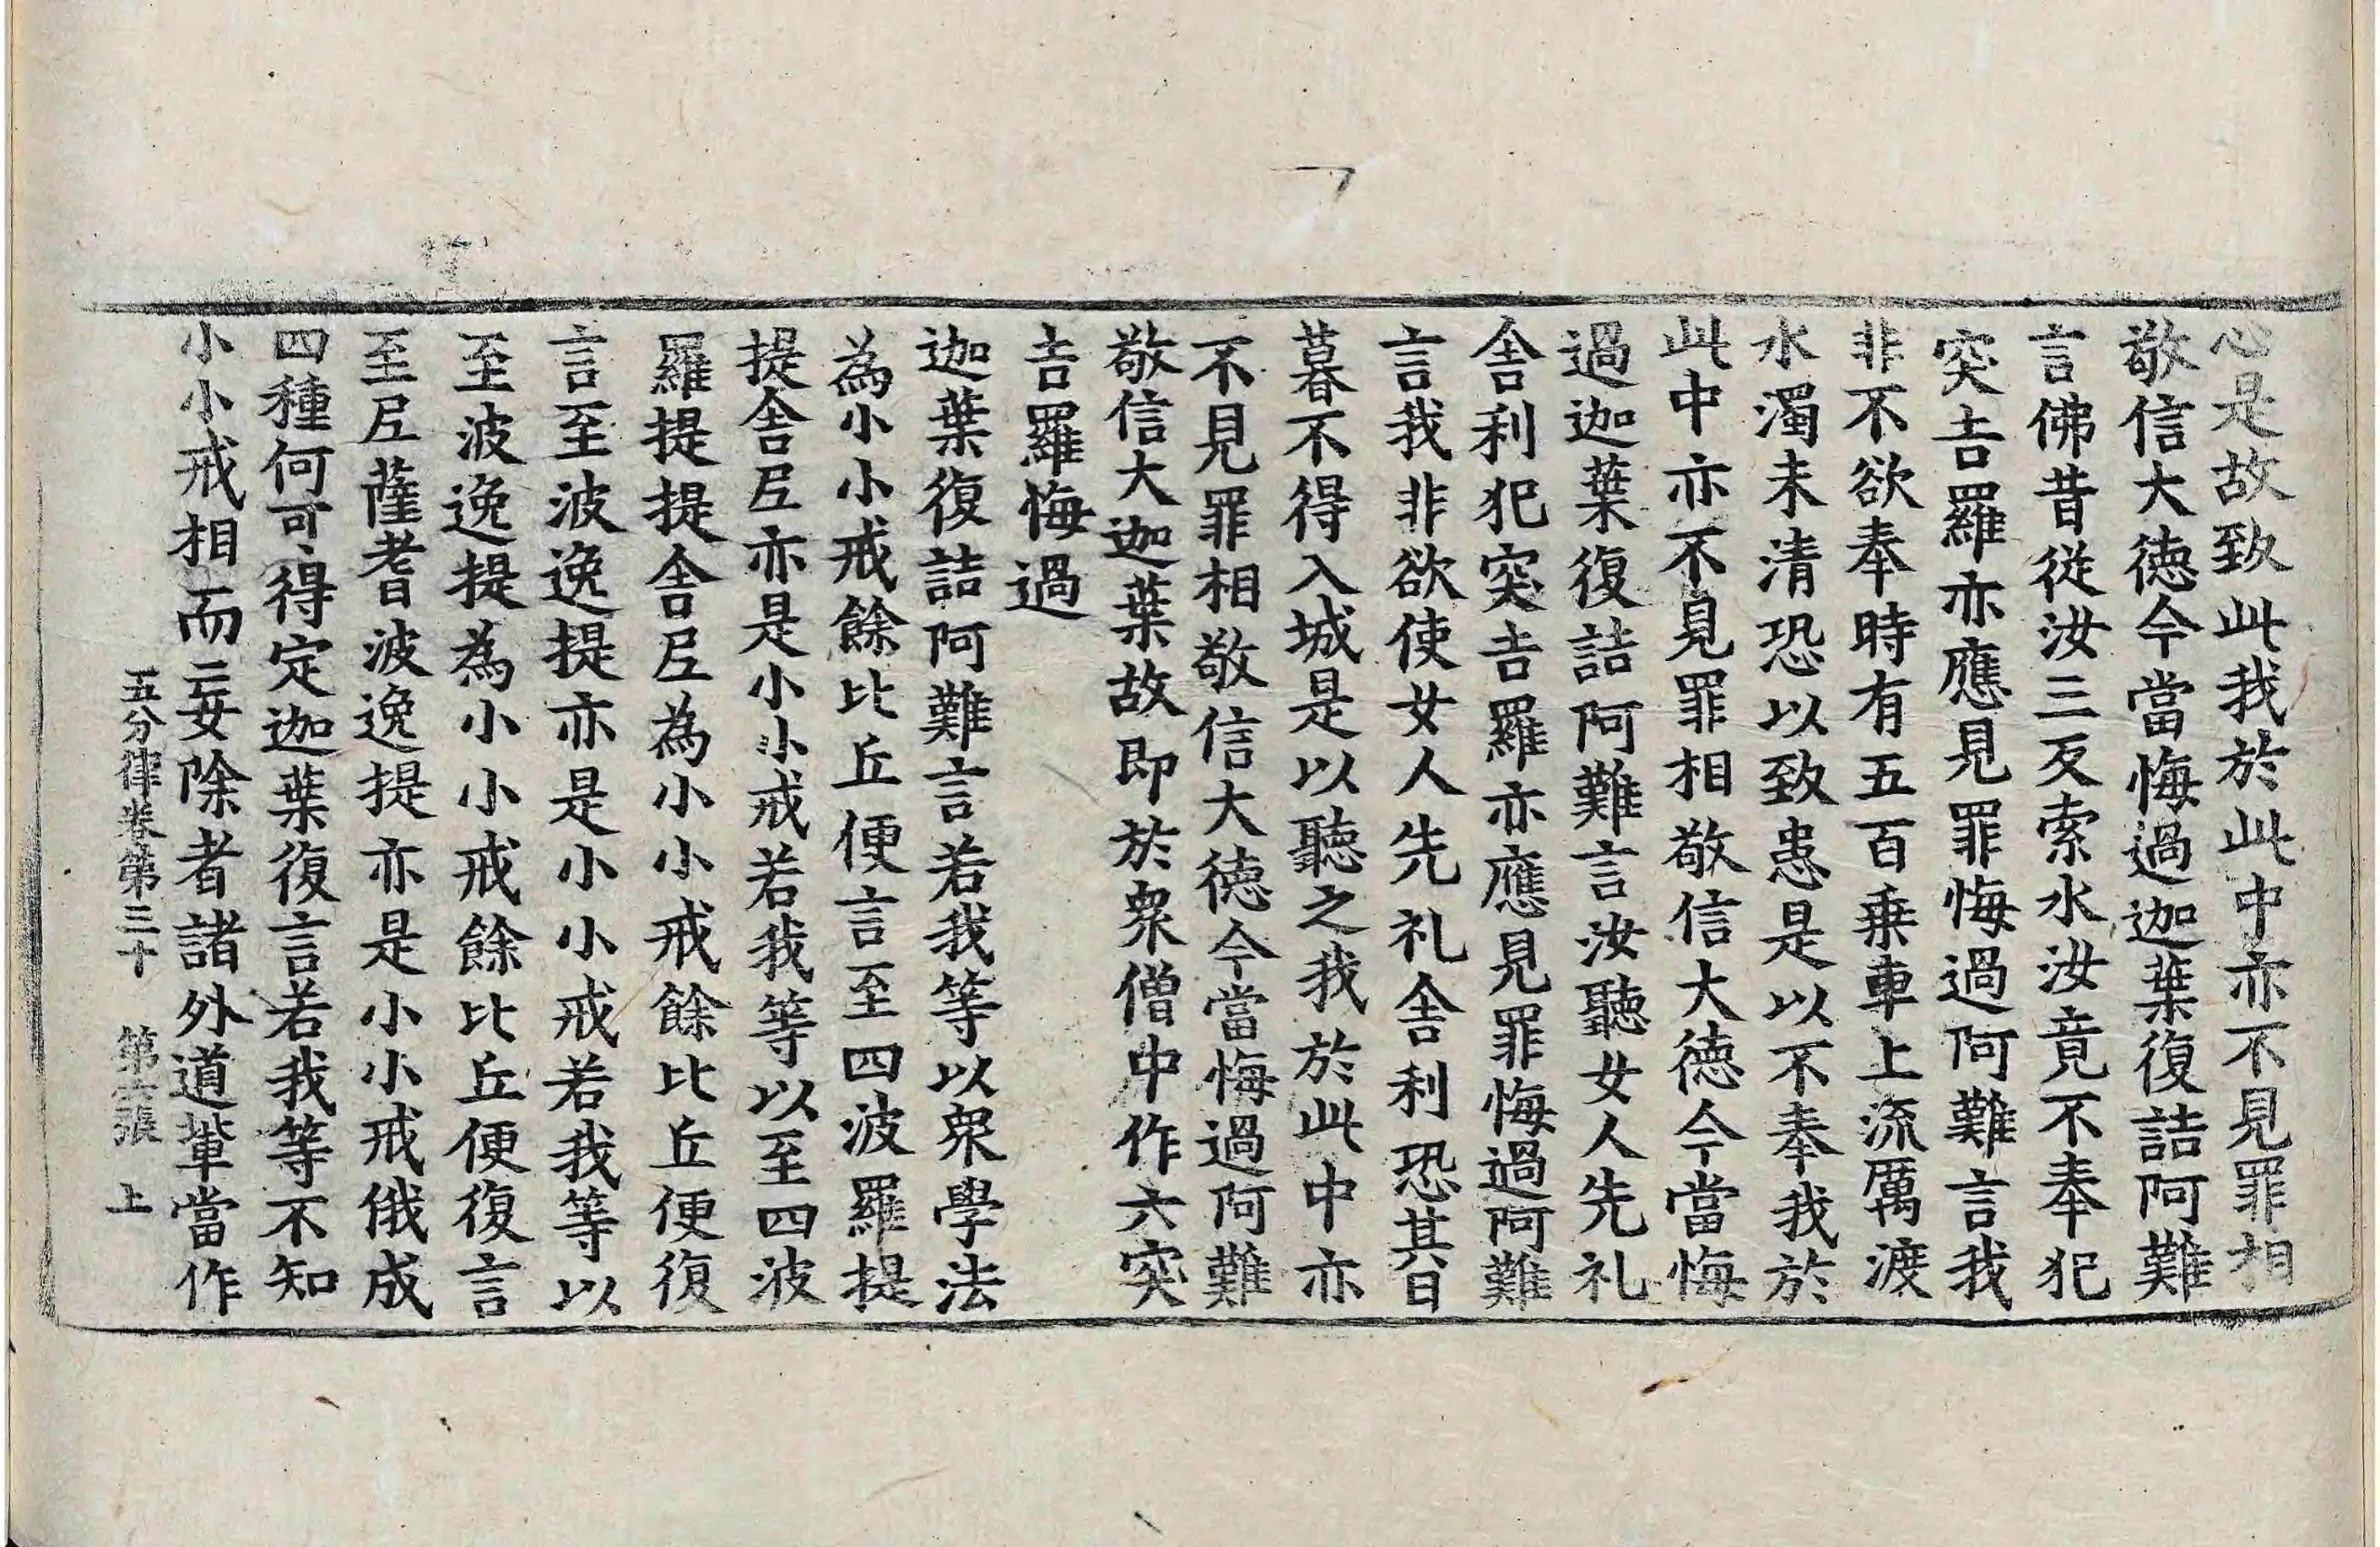 心是故致此我於此中亦不見罪相
敬信大德今當悔過迦葉復詰阿難
言佛昔從汝三反索水汝竟不奉犯
突吉羅亦應見罪悔過阿難言我
非不欲奉時有五百乗車上流厲渡
水濁未清恐以致患是以不奉我於
此中亦不見罪相敬信大德今當悔
過迦葉復詰阿難言汝聽女人先礼
舎利犯突吉羅亦應見罪悔過阿難
言我非欲使女人先礼舎利恐其日
暮不得入城是以聽之我於此中亦
不見罪相敬信大德今當悔過阿難
敬信大迦葉故即於衆僧中作六突
吉羅悔過
迦葉復詰阿難言若我等以衆學法
為小小戒餘比丘便言至四波羅提
提舎尼亦是小小戒若我等以至四波
羅提提舎尼為小小戒餘比丘便復
言至波逸提亦是小小戒若我等以
至波逸提為小小戒餘比丘便復言
至尼薩耆波逸提亦是小小戒俄成
四種何可得定迦葉復言若我等不知
小小戒相而妄除者諸外道輩當作
五分律卷第三十 第六張 上